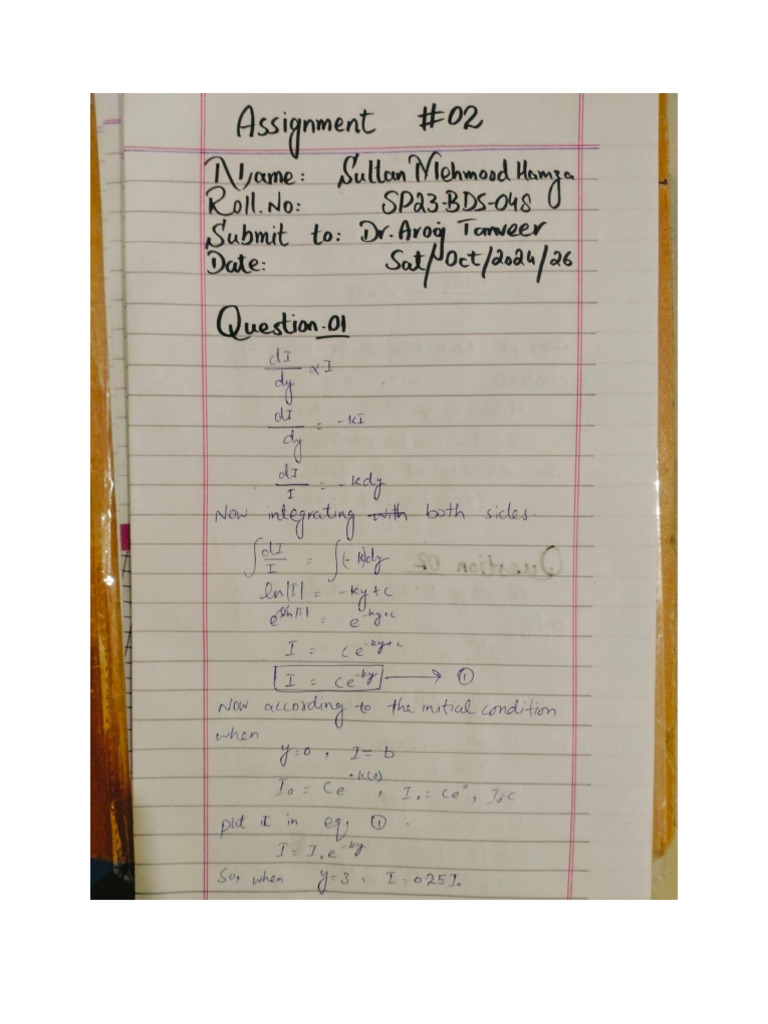 Assignment #02
Name: Sultan Mehmood Hamza
Roll.No: SP23-BDS-048
Submit to: Dr. Arooj Tanveer
Date: Sat/Oct/2024/26
Question.01
dI/dy ∝ I
dI/dy = -kI
dI/I = -kdy
Now integrating with both sides.
∫dI/I = ∫(-k)dy
ln|I| = -ky+c
e^ln|I| = e^-ky+c
I = ce^-ky+c
I = ce^-ky → ①
Now according to the initial condition
when
y=0, I= b
I₀ = Ce^-k(0), I₀ = Ce⁰, I₀=c
put it in eq ①.
I = I₀e^-ky
So, when y=3, I=0.25I₀